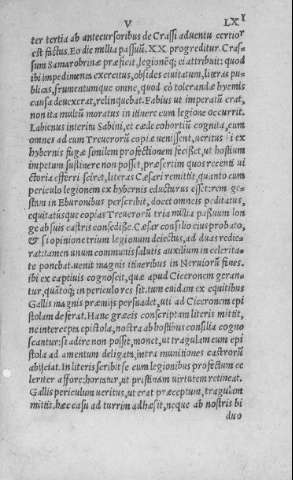 V LXI
ter tertia ab antecursoribus de Crassi aduentu certior
est factus. Eo die millia passuũ. XX. progreditur. Cras-
sum Samarobrinæ præficit, legionēq; ei attribuit: quod
ibi impedimenta exercitus, obsides ciuitatum, literas pu-
blicas, frumentumque omne, quod eò tolerandæ hyemis
causa deuexerat, relinquebat. Fabius ut imperatũ erat,
non ita multũ moratus in itinere cum legione occurrit.
Labienus interitu Sabini, et cæde cohortiũ cognita, cum
omnes ad eum Treuerorũ copiæ uenissent, ueritus si ex
hybernis fugæ similem profectionem fecisset, ut hostium
impetum sustinere non posset, præsertim quos recenti ui-
ctoria efferri sciret, literas Cæsari remittit, quanto cum
periculo legionem ex hybernis educturus esset: rem ge-
stam in Eburonibus perscribit, docet omneis peditatus,
equitatusque copias Treuerorũ tria millia passuum lon
ge ab suis castris consedisse. Cæsar consilio eius probato,
& si opinione trium legionum deiectus, ad duas redie-
rat: tamen unum communis salutis auxilium in celerita-
te ponebat. uenit magnis itineribus in Neruiorũ fines.
ibi ex captiuis cognoscit, quæ apud Ciceronem geran-
tur, quãtoq; in periculo res sit. tum cuidam ex equitibus
Gallis magnis præmijs persuadet, uti ad Ciceronem epi
stolam deferat. Hanc græcis conscriptam literis mittit,
ne intercepta epistola, nostra ab hostibus consilia cogno
scantur: si adire non possit, monet, ut tragulam cum epi
stola ad amentum deligata, intra munitiones castrorũ
abijciat. In literis scribit se cum legionibus profectum ce
leriter affore: hortatur, ut pristinam uirtutem retineat.
Gallus periculum ueritus, ut erat præceptum, tragulam
mittit. hæc casu ad turrim adhæsit, neque ab nostris bi
duo